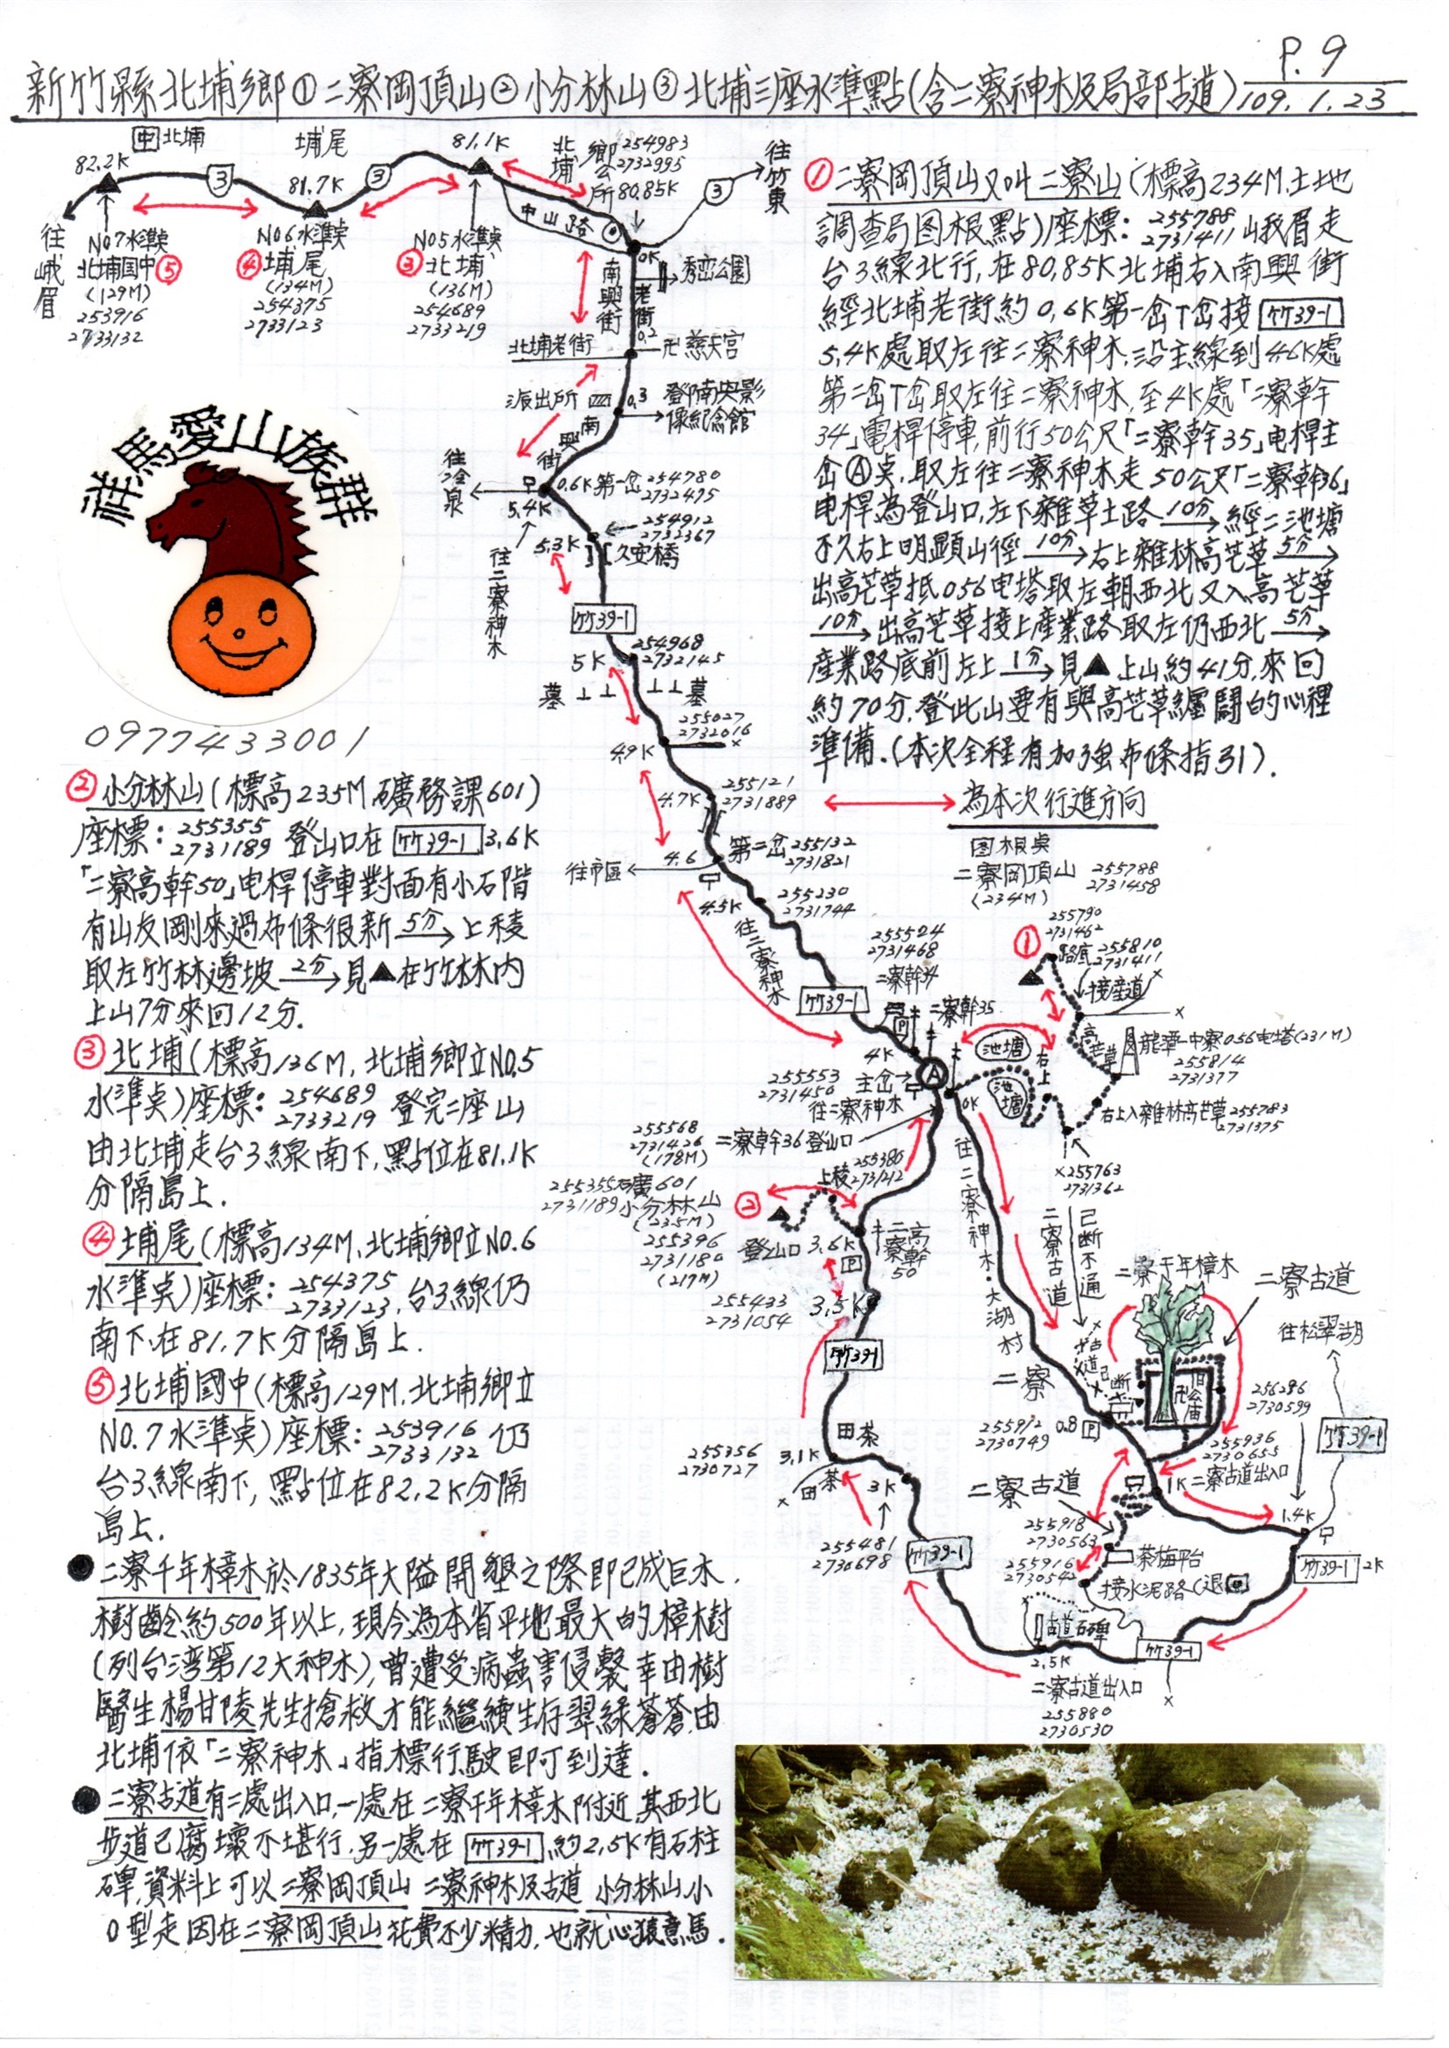 P.9
新竹縣北埔鄉①二寮岡頂山②小分林山③北埔三座水準點(含二寮神木及局部古道)109.1.23
中 北埔
埔尾
82.2K
81.7K
81.1K
3
3
3
北埔鄉公所
254983
2732995
80.85K
往竹東
往峨眉
NO7水準点
北埔国中 ⑤
(129M)
253916
2733132
NO6水準点
④ 埔尾
(134M)
254375
2733123
NO5水準点
③ 北埔
(136M)
254689
2733219
中山路
0K
南興街
老街
秀巒公園
0.2
北埔老街
卍慈天宮
派出所
0.3
登陣南興影
像紀念館
南興街
往冷泉
0.6K第一岔
254780
2732475
5.4K
往二寮神木
254912
2732367
5.3K
久安橋
竹39-1
254968
2732145
5K
墓⊥⊥
⊥⊥墓
255027
2732016
4.9K
255121
2731889
4.7K
第二岔
255132
2731821
4.6
往市區
4.5K
255230
2731744
往二寮神木
祥馬愛山族群
0977433001
①二寮岡頂山又叫二寮山(標高234M.土地
調查局图根點)座標:255788 2731411 峨眉走
台3線北行,在80.85K北埔右入南興街
經北埔老街約0.6K第一岔T岔接 竹39-1
5.4K處取左往二寮神木,沿主線到4.6K處
第二岔T岔取左往二寮神木,至4K處「二寮幹
34」電桿停車,前行50公尺「二寮幹35」电桿主
岔Ⓐ点,取左往二寮神木走50公尺「二寮幹36」
电桿為登山口,左下雜草土路 10分→經二池塘
不久右上明顯山徑 10分→右上雜林高芒草 5分→
出高芒草抵056电塔取左朝西北又入高芒草
10分→出高芒草接上產業路取左仍西北 5分→
產業路底前左上 1分→見▲上山約41分.來回
約70分.登此山要有與高芒草纏鬪的心裡
準備.(本次全程有加強布條指引).
為本次行進方向
②小分林山(標高235M,礦務課601)
座標:255355 2731189 登山口在 竹39-1 3.6K
「二寮高幹50」电桿停車對面有小石階
有山友剛來過布條很新 5分→上稜
取左竹林邊坡 2分→見▲在竹林內
上山7分來回12分.
③北埔(標高136M,北埔鄉立NO.5
水準点)座標:254689 2733219 登完二座山
由北埔走台3線南下,點位在81.1K
分隔島上.
④埔尾(標高134M,北埔鄉立NO.6
水準点)座標:254375 2733123,台3線仍
南下,在81.7K分隔島上.
⑤北埔國中(標高129M,北埔鄉立
NO.7水準点)座標:253916 2733132 仍
台3線南下,點位在82.2K分隔
島上.
●二寮千年樟木於1835年大隘開墾之際即已成巨木.
樹齡約500年以上,現今為本省平地最大的樟樹
(列台湾第12大神木),曾遭受病蟲害侵襲幸由樹
醫生楊甘陵先生搶救才能繼續生存翠綠蒼蒼,由
北埔依「二寮神木」指標行駛即可到達.
●二寮古道有二處出入口,一處在二寮千年樟木附近,其西北
步道已腐壞不堪行.另一處在 竹39-1 約2.5K有石柱
碑,資料上可以二寮岡頂山 二寮神木及古道 小分林山小
O型走因在二寮岡頂山花費不少精力,也就心猿意馬.
图根点
二寮岡頂山
(234M)
255788
2731458
①
255790
2731462
路底
255810
2731411
接產道
高芒草
龍潭-中寮056电塔(231M)
255814
2731377
右上入雜林高芒草
255783
2731375
x255763
2731362
右上
池塘
池塘
255524
2731468
二寮幹34
二寮幹35
P
竹39-1
4K
Ⓐ
0K
255553
2731450
主岔
往二寮神木
255568
2731426
(178M)
二寮幹36登山口
上稜
255386
2731212
255355
2731189
礦601
小分林山
(235M)
②
255396
2731180
(217M)
登山口
3.6K
P
二寮高幹50
255433
2731054
3.5K
竹39-1
往二寮神木.大湖村
二寮
二寮古道
已斷不通
二寮千年樟木
二寮古道
往松翠湖
古道已斷
卍伯公廟
255912
2730749
0.8
P
256286
2730599
竹39-1
255936
2730655
1K二寮古道出入口
1.4K
二寮古道
255918
2730563
茶梅平台
255916
2730542
接水泥路(退回)
竹39-1
2K
田茶
3.1K
255356
2730727
田茶
3K
255481
2730698
竹39-1
古道石碑
2.5K
二寮古道出入口
255880
2730530
竹39-1